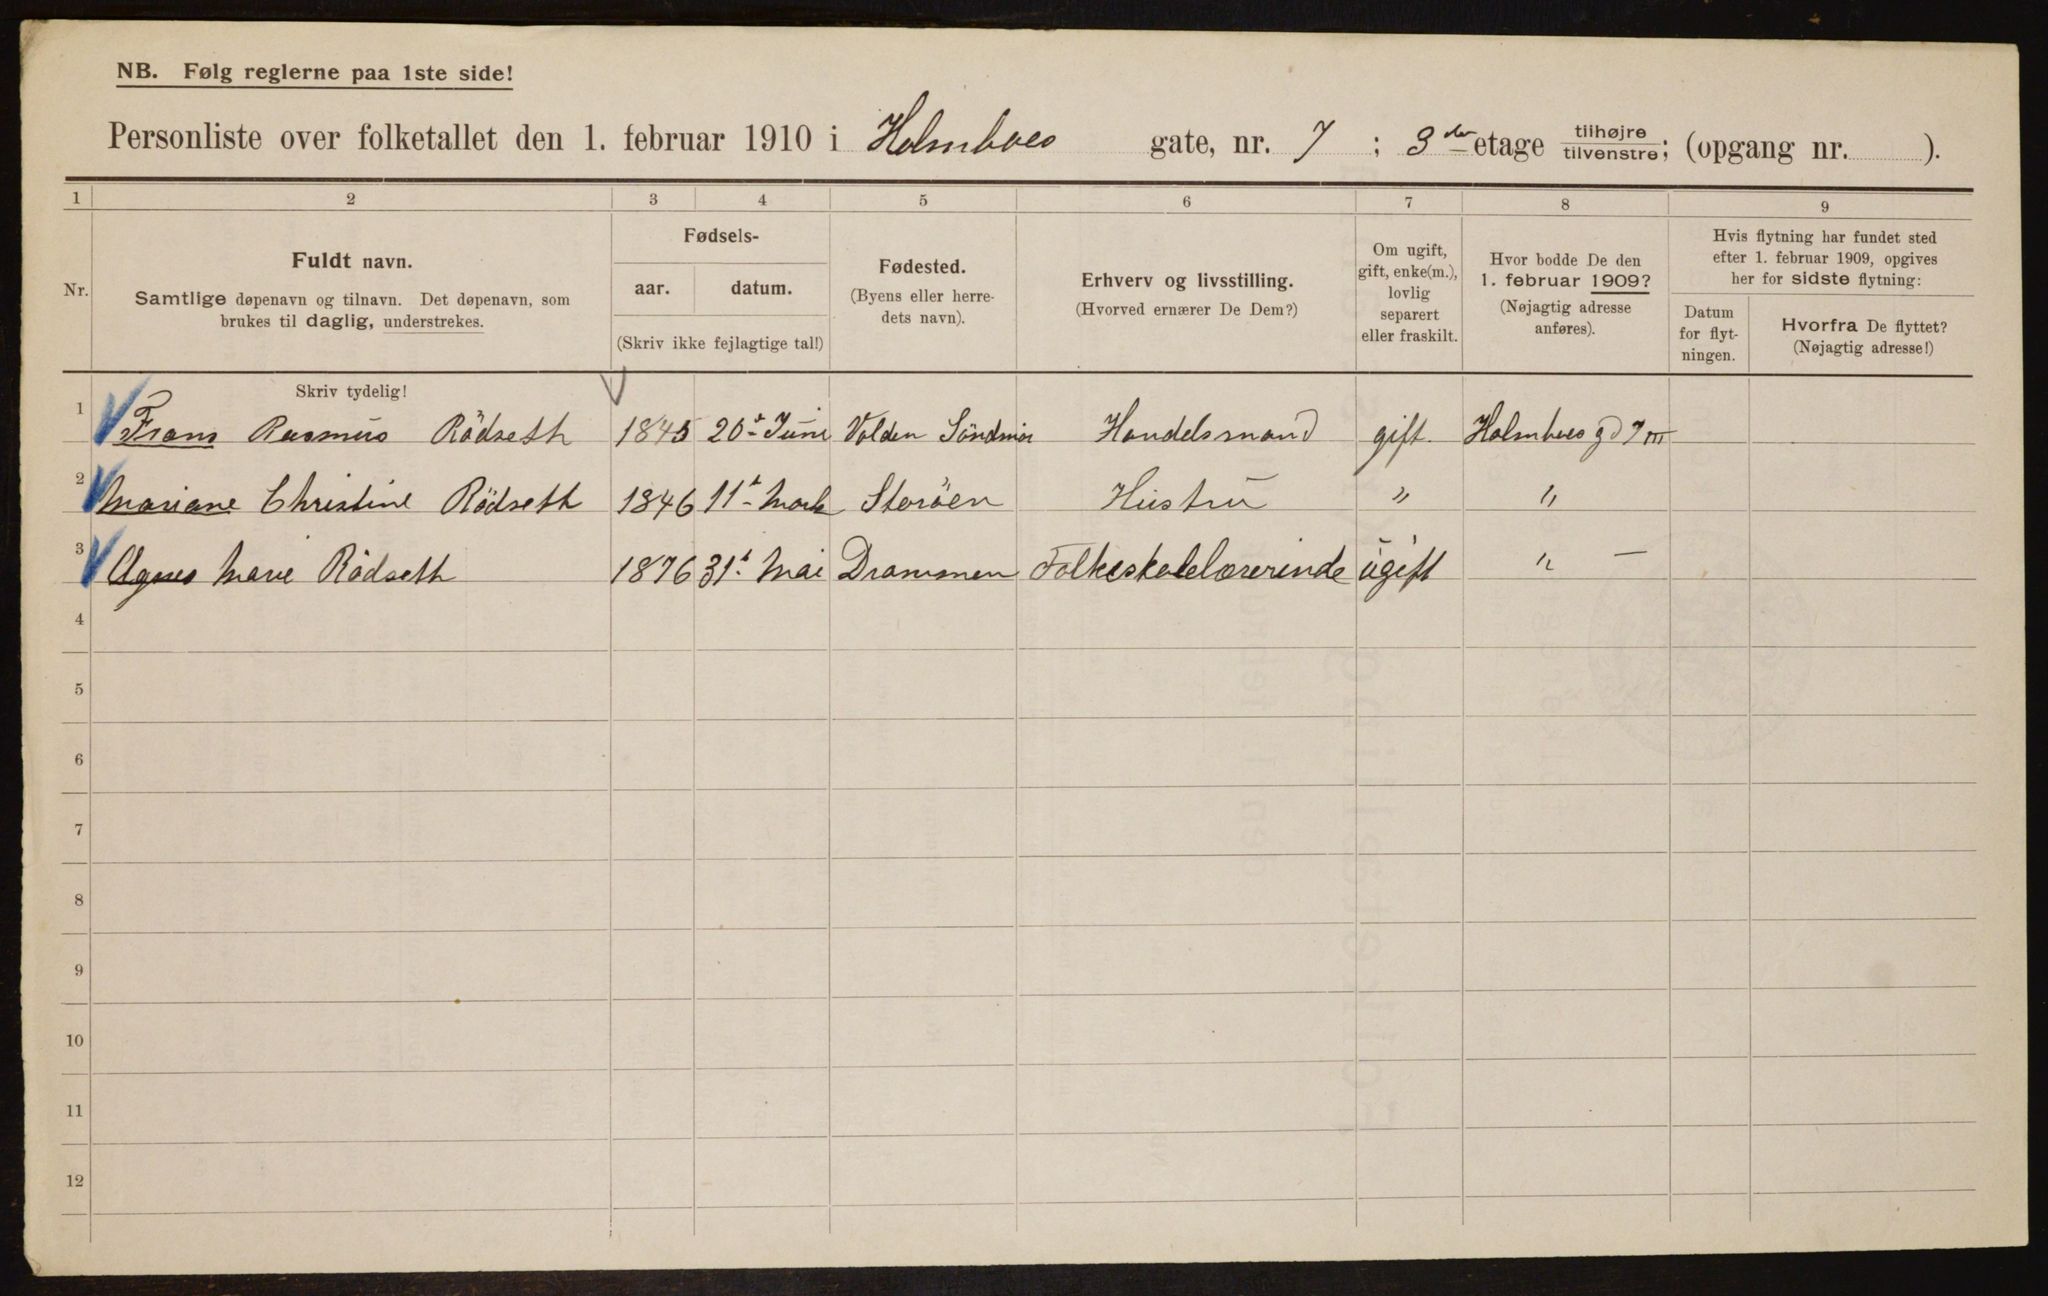 NB. Følg reglerne paa 1ste side!
Personliste over folketallet den 1. februar 1910 i Holmboes gate, nr. 7 ; 3 die etage tilhøjre/tilvenstre; (opgang nr. ).
1 2 3 4 5 6 7 8 9
Nr.
Fuldt navn.
Samtlige døpenavn og tilnavn. Det døpenavn, som
brukes til daglig, understrekes.
Fødsels-
aar. datum.
(Skriv ikke fejlagtige tal!)
Fødested.
(Byens eller herre-
dets navn).
Erhverv og livsstilling.
(Hvorved ernærer De Dem?)
Om ugift,
gift, enke(m.),
lovlig
separert
eller fraskilt.
Hvor bodde De den
1. februar 1909?
(Nøjagtig adresse
anføres).
Hvis flytning har fundet sted
efter 1. februar 1909, opgives
her for sidste flytning:
Datum
for flyt-
ningen.
Hvorfra De flyttet?
(Nøjagtig adresse!)
Skriv tydelig!
1 Frans Rasmus Rödseth 1845 20 Juni Volden Söndmör Handelsmand gift. Holmboes gd 7 III
2 Mariane Christine Rödseth 1846 11 Storöen Hustru " "
3 Agnes Marie Rödseth 1876 31 Mai Drammen Folkeskolelærerinde ugift " —
4
5
6
7
8
9
10
11
12